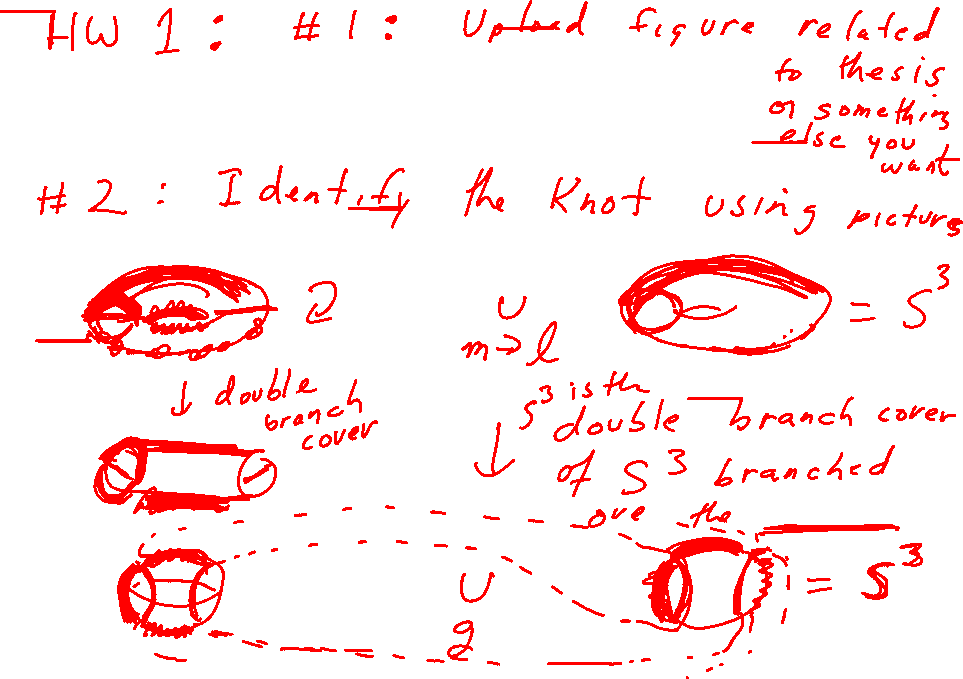 HW 1: #1: Upload figure related
to thesis
or something
else you
want
#2: Identify the Knot using pictures
∪
m→l
= S³
↓ double
branch
cover
S³ is th
double branch cover
of S³ branched
ove the
∪
= S³